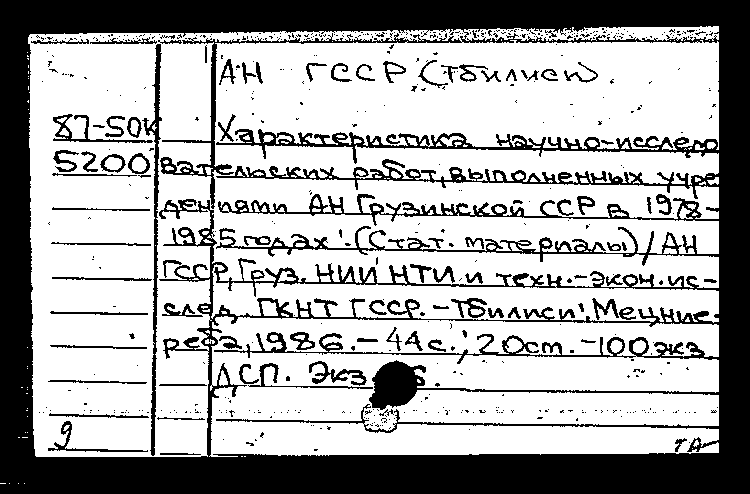 АН ГССР (Тбилиси).
87-50К Характеристика научно-исследо
5200 вательских работ, выполненных учре
дениями АН Грузинской ССР в 1978-
1985 годах : (Стат. материалы) / АН
ГССР, Груз. НИИ НТИ и техн.-экон. ис-
след. ГКНТ ГССР. - Тбилиси : Мецние-
реба, 1986. - 44 с. ; 20 см. - 100 экз
ДСП. Экз 6.
9 ТА